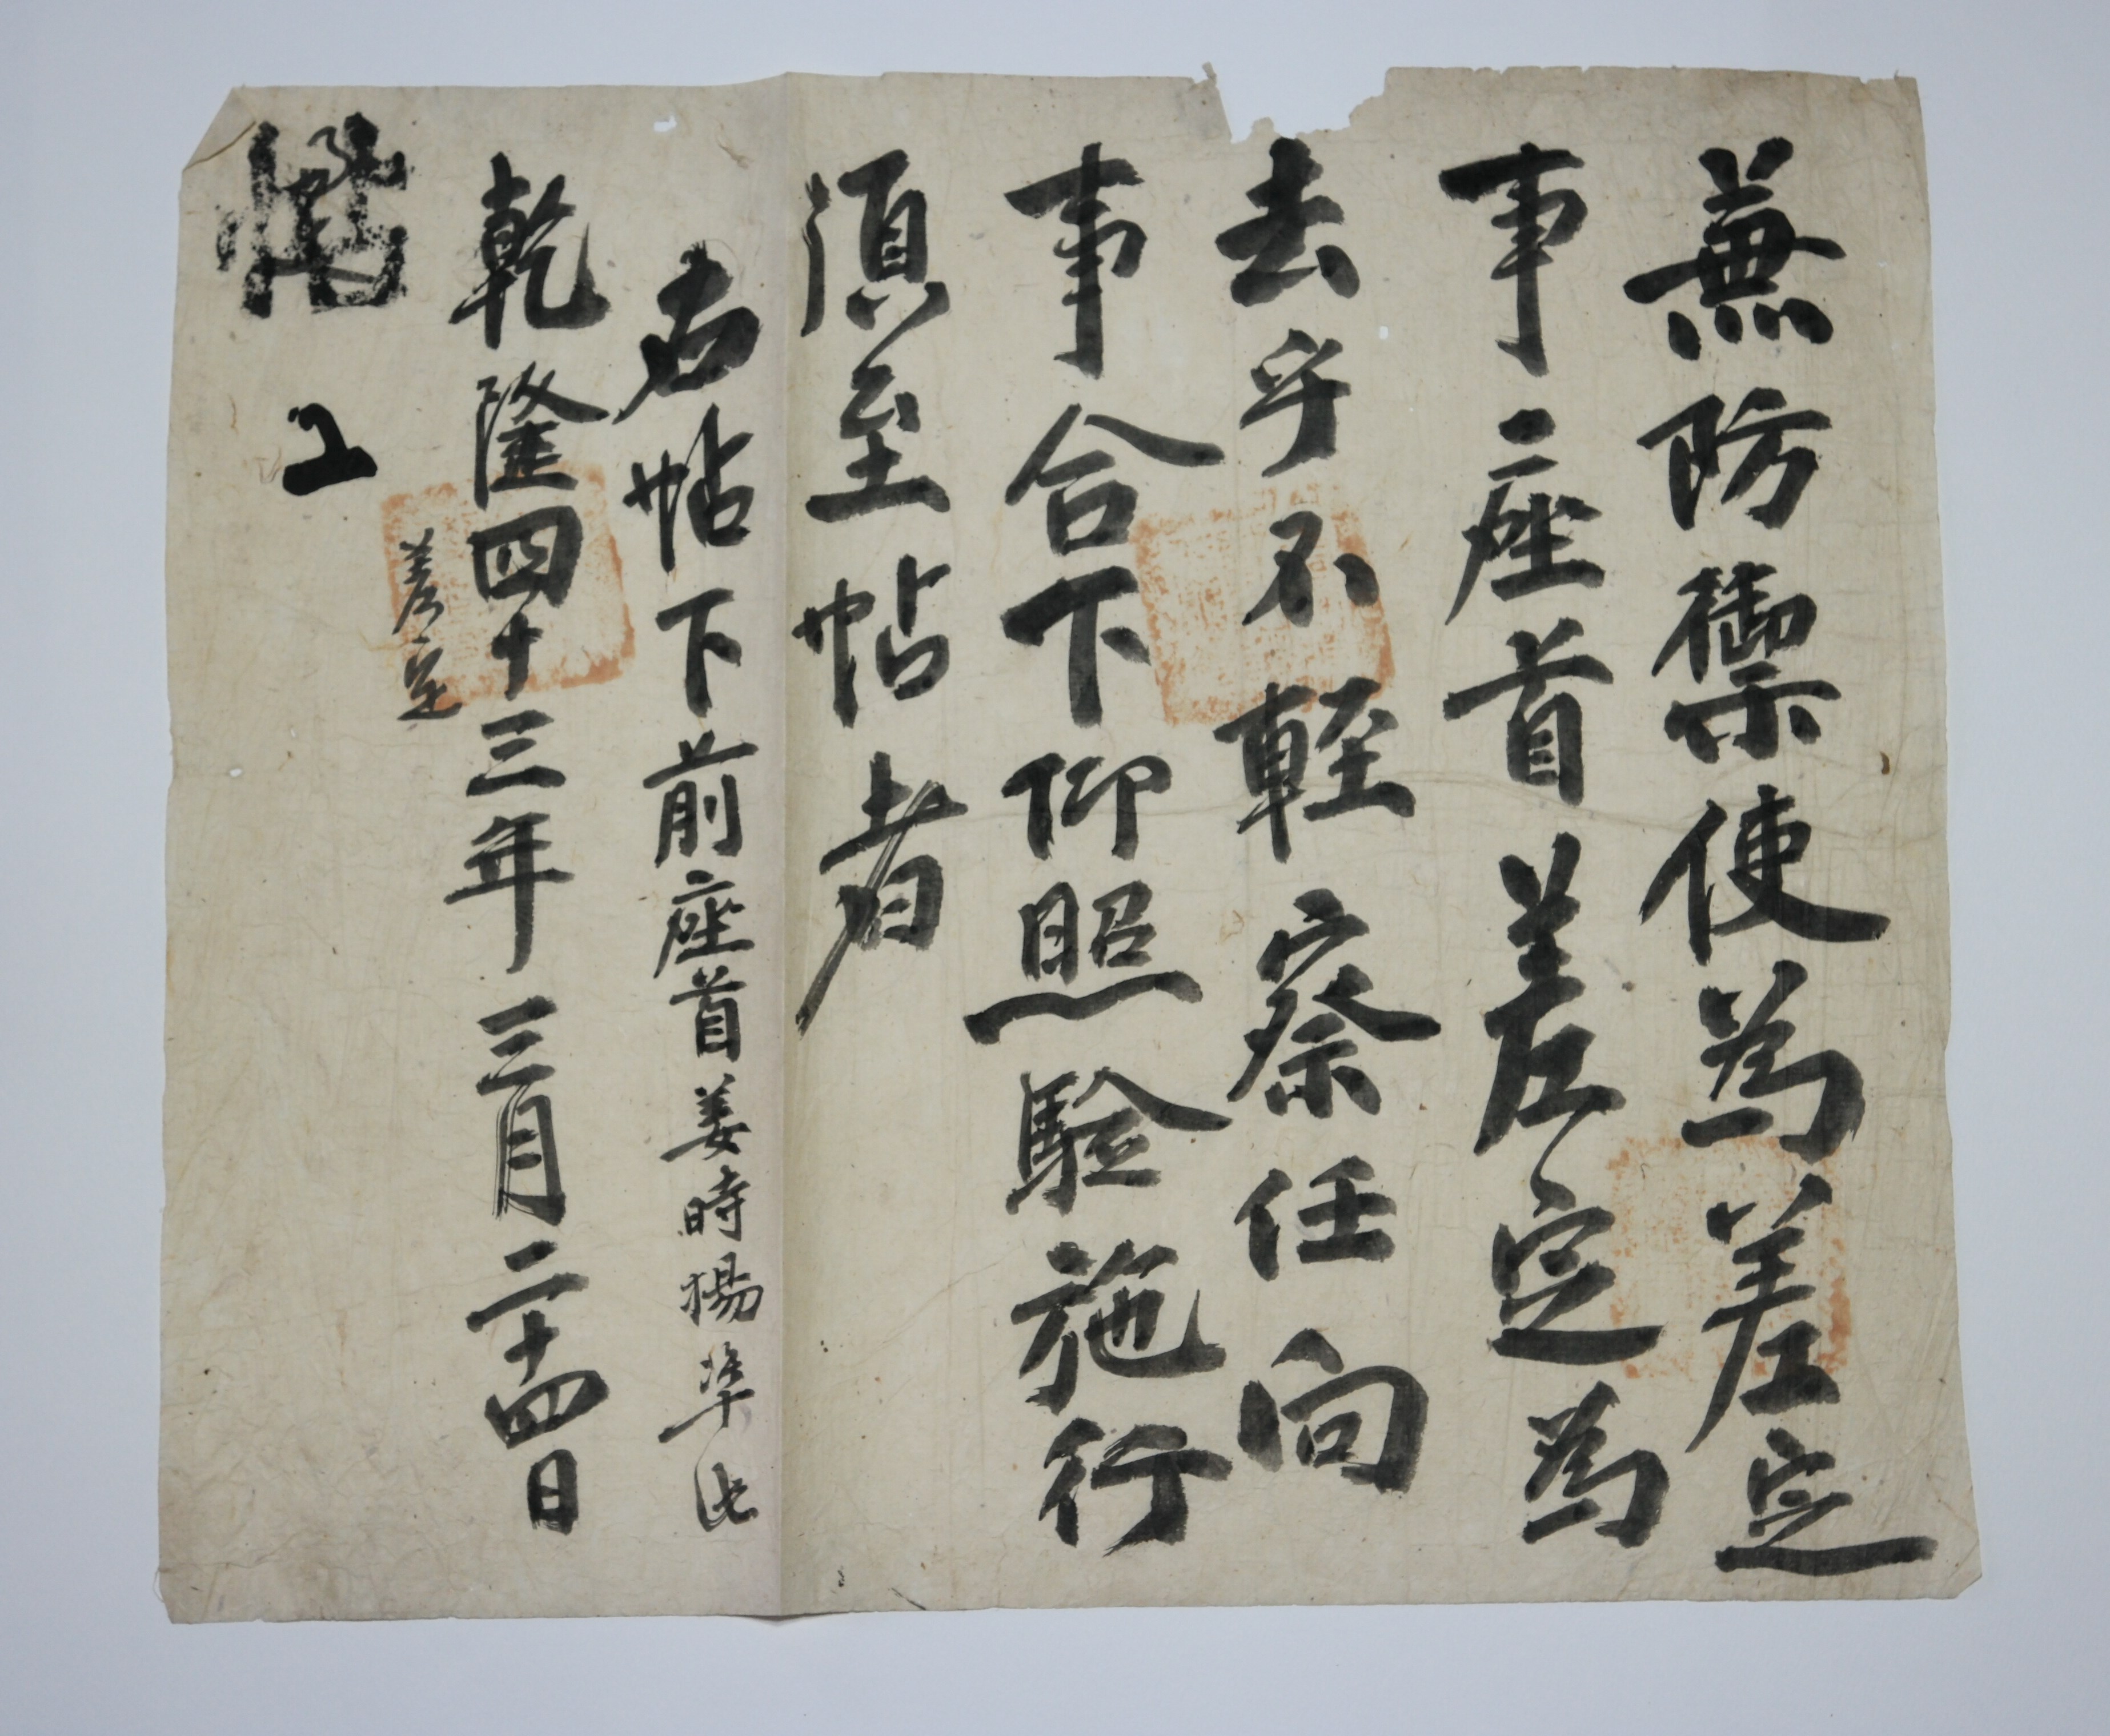 兼防禦使爲差定
事二座首差定爲
去乎不輕察任向
事合下仰照驗施行
須至帖者
右帖下前座首姜時楊準此
乾隆四十三年三月二十四日
差定